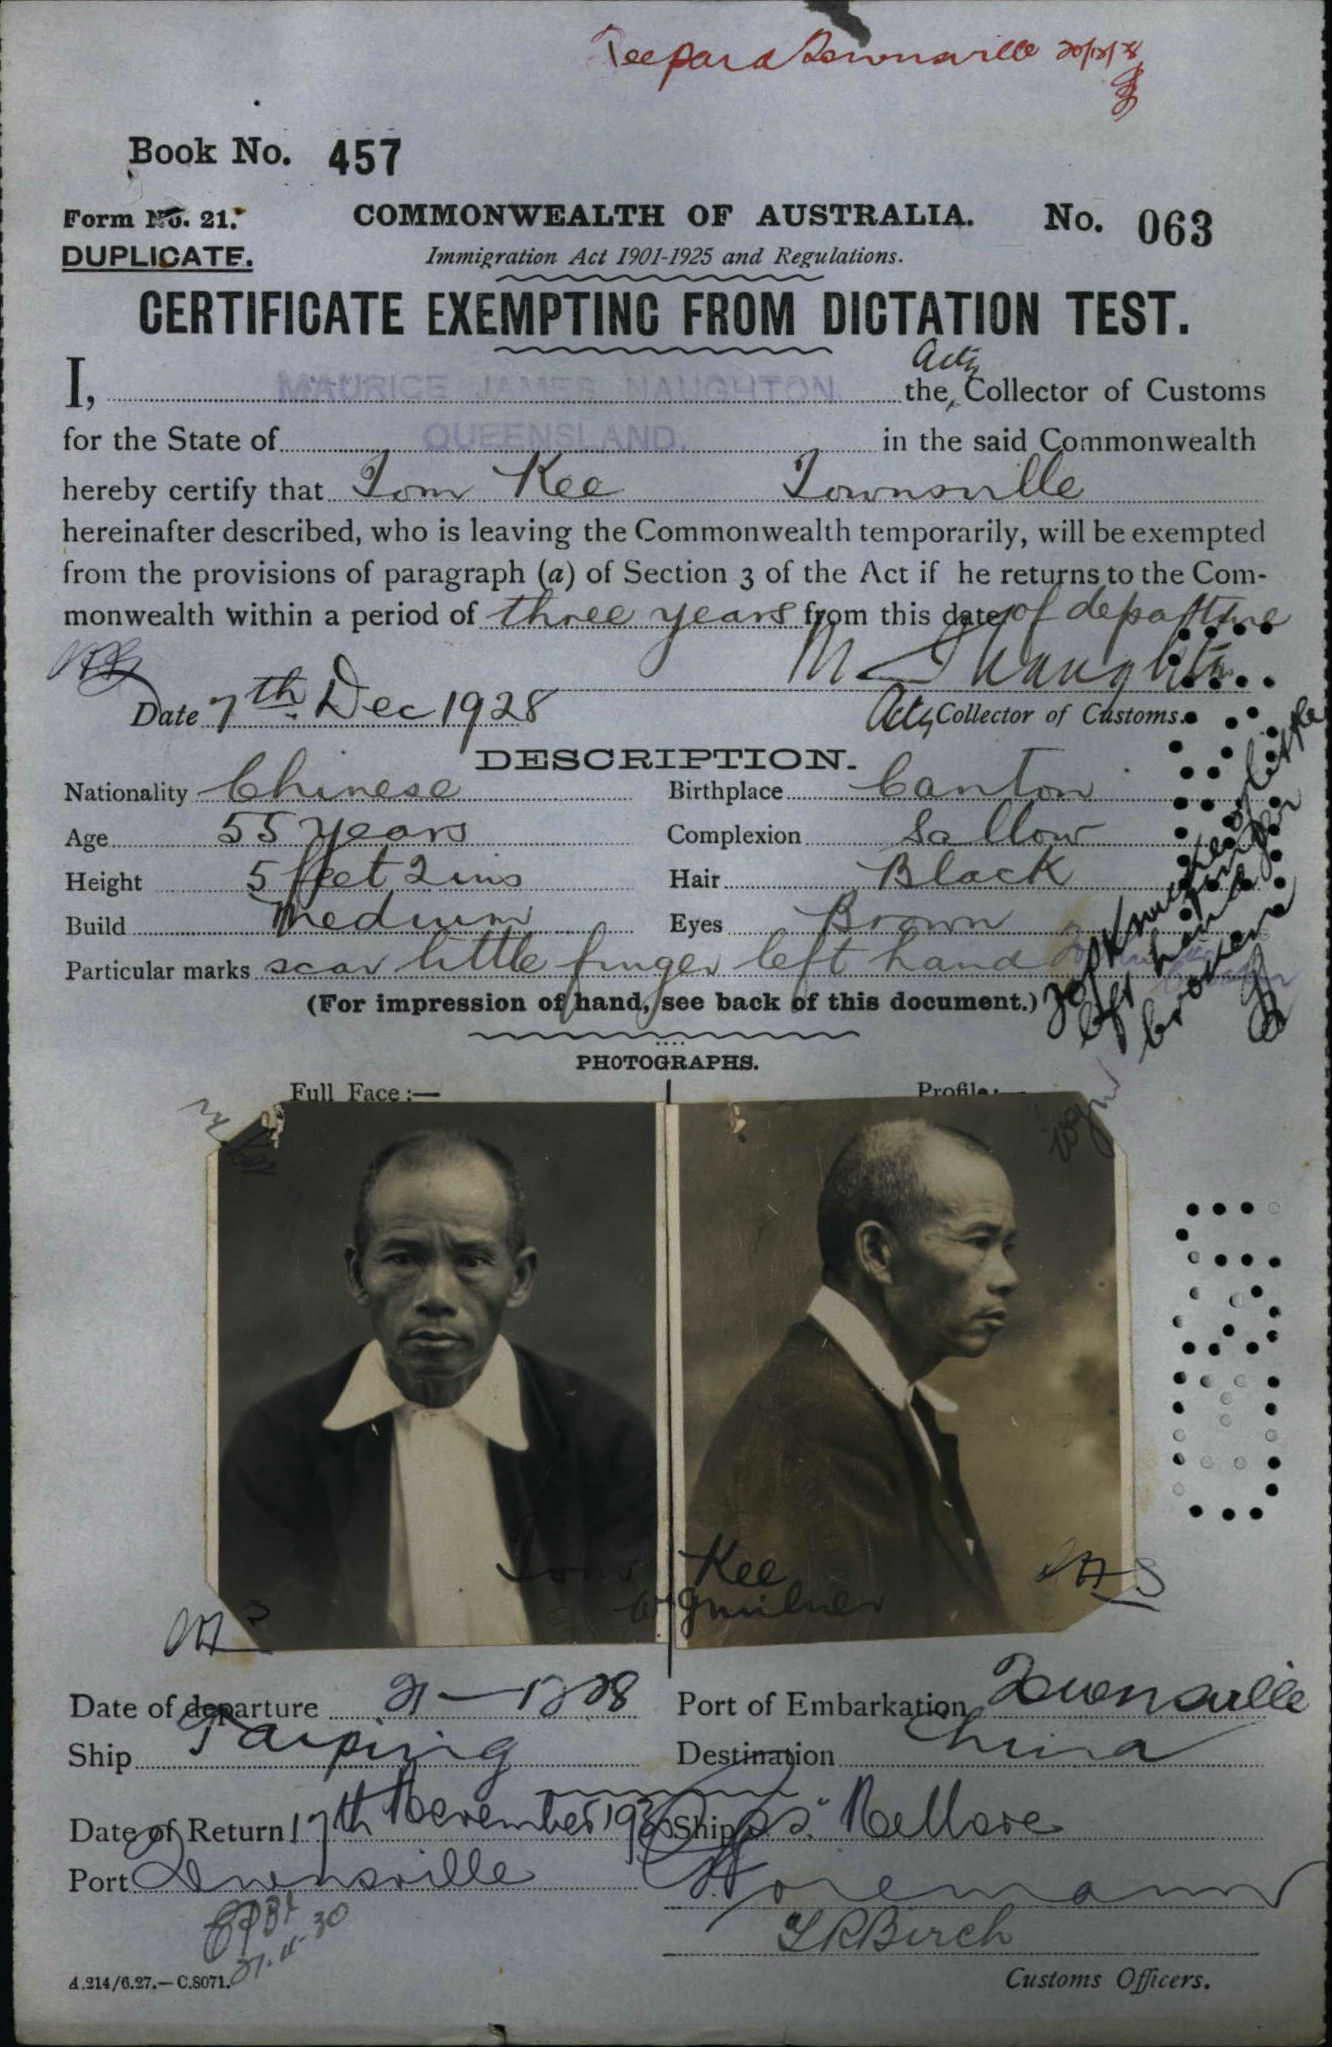 Townsville 20/12/28
Book No. 457
Form No. 21.
DUPLICATE.
COMMONWEALTH OF AUSTRALIA.
No. 063
Immigration Act 1901-1925 and Regulations.
CERTIFICATE EXEMPTING FROM DICTATION TEST.
I, MAURICE JAMES NAUGHTON the Actg Collector of Customs
for the State of QUEENSLAND. in the said Commonwealth
hereby certify that Tom Kee Townsville
hereinafter described, who is leaving the Commonwealth temporarily, will be exempted
from the provisions of paragraph (a) of Section 3 of the Act if he returns to the Com-
monwealth within a period of three years from this date of departure
M J Naughton
Date 7th Dec 1928
Actg Collector of Customs.
DESCRIPTION.
Nationality Chinese Birthplace Canton
Age 55 years Complexion Sallow
Height 5 feet 2 ins Hair Black
Build Medium Eyes Brown
Particular marks scar little finger left hand
top knuckle of little
finger
left hand
broken
(For impression of hand, see back of this document.)
PHOTOGRAPHS.
Full Face :— Profile :—
Tom Kee
W G Milner
Date of departure 21-12-28 Port of Embarkation Townsville
Ship Taiping Destination China
Date of Return 17th November 1930 Ship s.s. Nellore
Port Townsville
T R Birch
27.11.30
A.214/6.27.—C.8071.
Customs Officers.